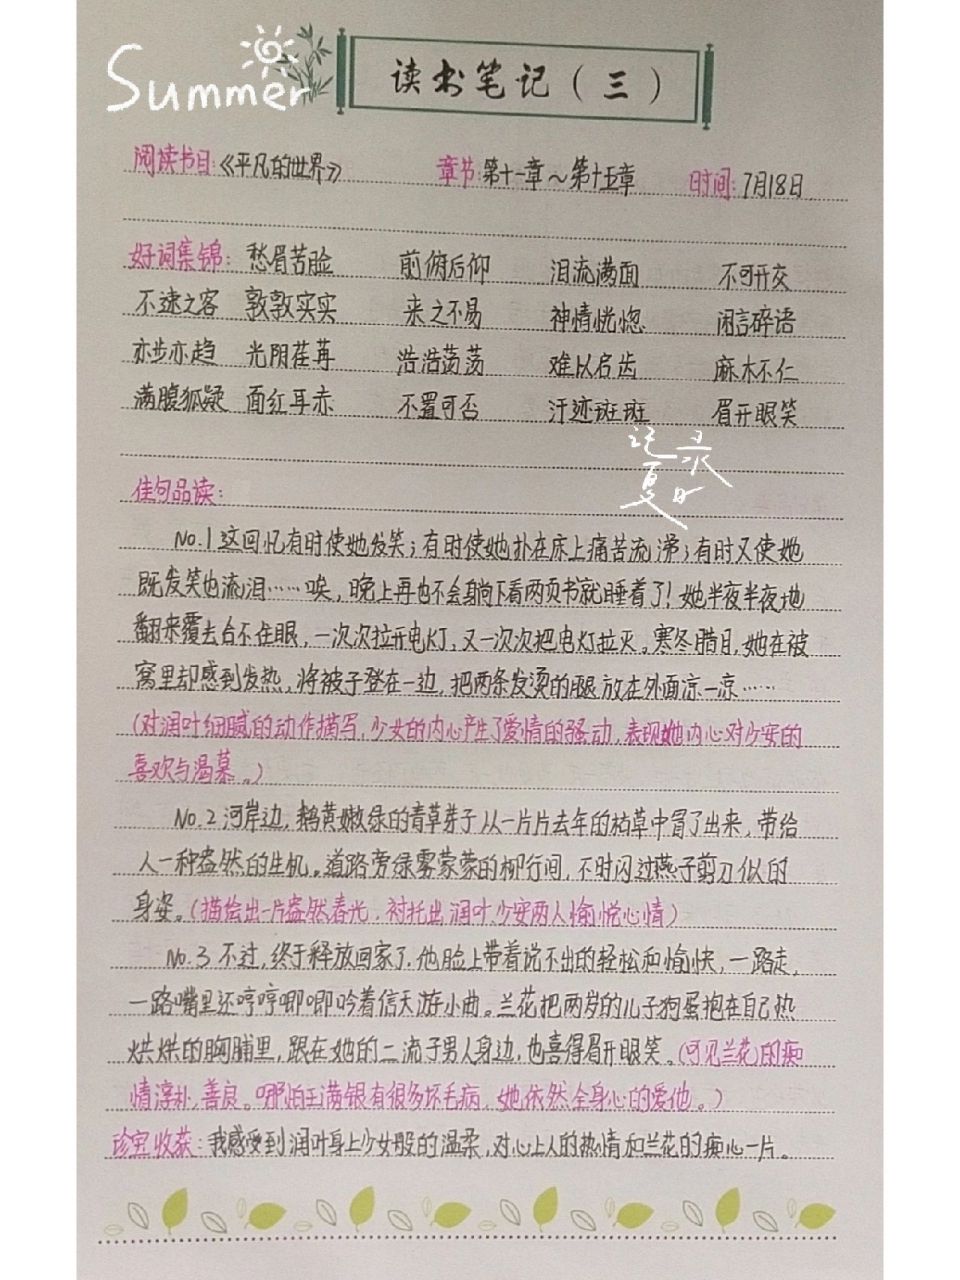 Summer
读书笔记（三）
阅读书目:《平凡的世界》 章节:第十一章～第十五章 时间:7月18日
好词集锦: 愁眉苦脸 前俯后仰 泪流满面 不可开交
不速之客 敦敦实实 来之不易 神情恍惚 闲言碎语
亦步亦趋 光阴荏苒 浩浩荡荡 难以启齿 麻木不仁
满腹狐疑 面红耳赤 不置可否 汗迹斑斑 眉开眼笑
记录
夏日
佳句品读:
No.1 这回忆有时使她发笑;有时使她扑在床上痛苦流涕;有时又使她
既发笑也流泪……唉，晚上再也不会躺下看两页书就睡着了！她半夜半夜地
翻来覆去合不住眼，一次次拉开电灯,又一次次把电灯拉灭。寒冬腊月,她在被
窝里却感到发热，将被子登在一边，把两条发烫的腿放在外面凉一凉……
(对润叶细腻的动作描写,少女的内心产生了爱情的骚动,表现她内心对少安的
喜欢与渴慕。)
No.2 河岸边,鹅黄嫩绿的青草芽子从一片片去年的枯草中冒了出来，带给
人一种盎然的生机。道路旁绿雾蒙蒙的柳行间，不时闪过燕子剪刀似的
身姿。(描绘出一片盎然春光,衬托出润叶少安两人愉悦心情)
No.3 不过,终于释放回家了.他脸上带着说不出的轻松和愉快，一路走，
一路嘴里还哼哼唧唧吟着信天游小曲。兰花把两岁的儿子狗蛋抱在自己热
烘烘的胸脯里，跟在她的二流子男人身边,也喜得眉开眼笑。(可见兰花的痴
情淳朴,善良。哪怕王满银有很多坏毛病,她依然全身心的爱他。)
珍宝收获:我感受到润叶身上少女般的温柔,对心上人的热情和兰花的痴心一片。